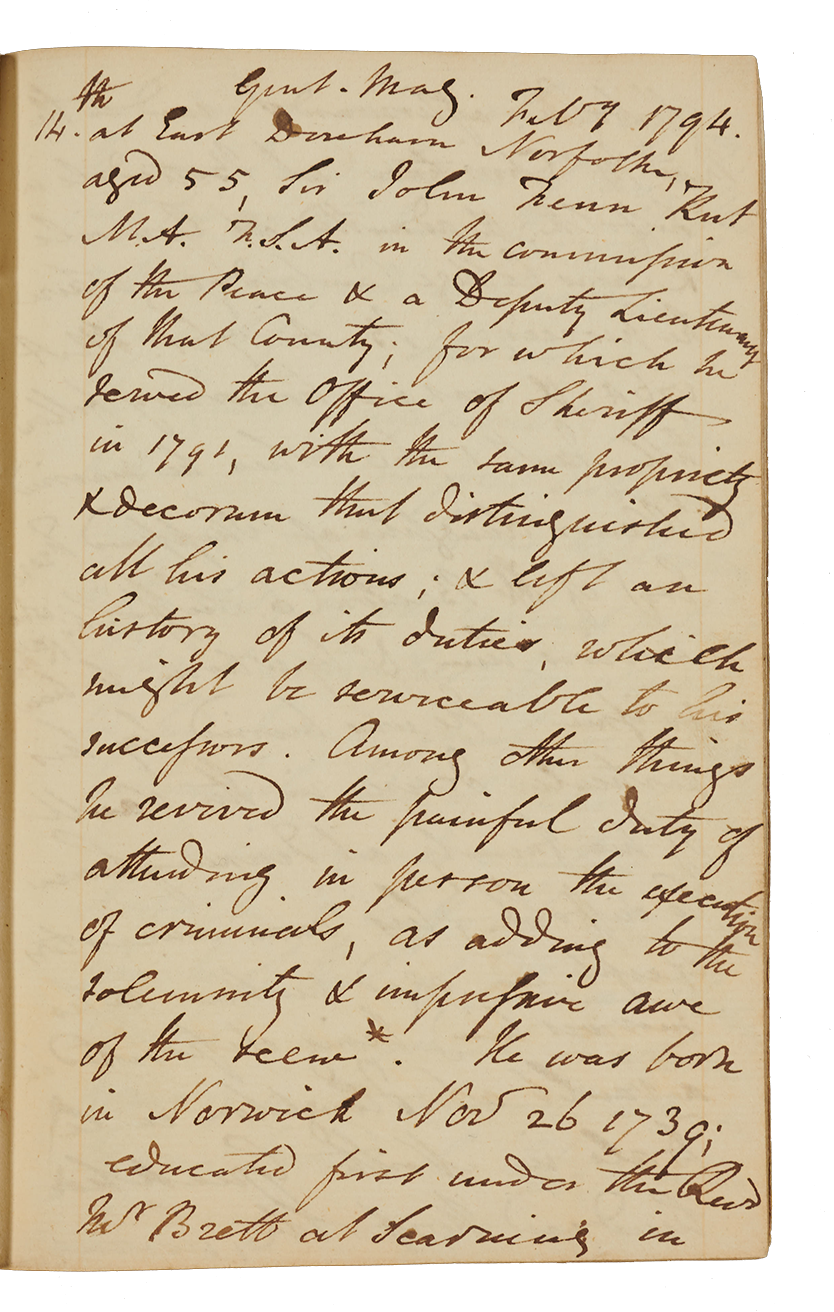 Gent. Mag. Feby 1794.
14.th at East Dereham Norfolk,
aged 55, Sir John Fenn Knt
M.A. F.S.A. in the commission
of the Peace & a Deputy Lieutenant
of that County; for which he
served the Office of Sheriff
in 1791, with the same propriety
& decorum that distinguished
all his actions; & left an
history of its duties, which
might be serviceable to his
successors. Among other things
he revived the painful duty of
attending in person the execution
of criminals, as adding to the
solemnity & impressive awe
of the scene*. He was born
in Norwich Nov 26 1739;
educated first under the Revd
Mr Brett at Scarning in